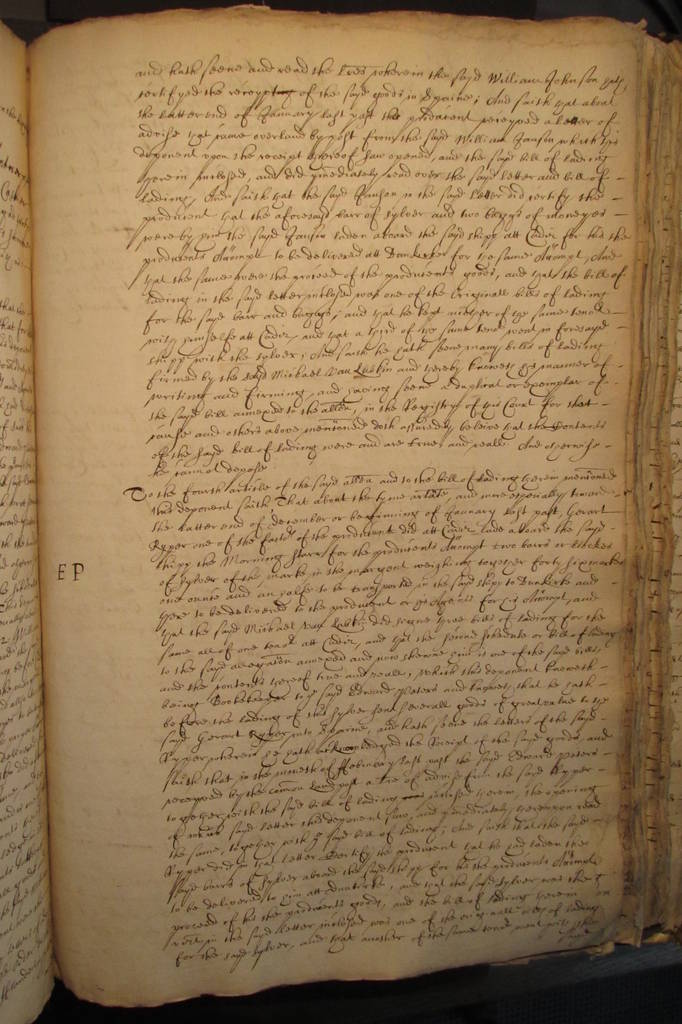 and hath seene and read the lres wherein the sayd William Johnson hath
certifyed the receypt of the sayd goods in Spaine; And saith that about
the latter end of January last past the producent receyved a letter of
advise that came overland by post from the sayd William Janson which this
deponent upon the receipt thereof saw opened, and the sayd bill of lading
therein inclosed, and did ymediately read over the sayd letter and bill of
lading, And saith that the sayd Janson in the sayd letter did certify the
producent that the aforesayd barr of sylver and two baggs of moneyes
were by him the sayd Janson laden aboard the sayd shipp att Cadiz for his the
producents Accompt to be delivered att Dunkirke for the same Accompt, And
that the same were the proceed of the producents goods, and that the bill of
lading in the sayd letter inclosed was one of the Originall bills of lading
for the sayd barr and baggs, and that he kept another of the same tenor
with himselfe att Cadiz, and that a third of the same tenor went in the foresayd
shipp with the sylver; And saith he hath seene many bills of lading
firmed by the sayd Michael Van Lubkin and thereby knoweth his manner of
writing and firming, and having seene a duplicat or exemplar of
the sayd bill annexed to the allon, in the Registry of this Court for that
cause and others above mentioned doth assuredly beleive that the Contents
of the sayd bill of lading were and are true and reall. And otherwise
he cannot depose
To the fourth article of the sayd allon and to the bill of lading therein mentioned
this deponent saith That about the tyme arlate, and more especially toward
the latter end of december or beginning of January last past, Gerart
Ryper one of the factors of the producent did att Cadiz lade aboard the sayd
shipp the Morning Starr for the producents Accompt two barrs or
of sylver of the marke in the margent weighing together forty six markes
one ounce and an halfe to be transported in the sayd shipp to Dunkirke and
there to be delivered to the producent or his Assignes for his Accompt, and
EP
that the sayd Michael van Lubkin did signe three bills of lading for the
same all of one tenor att Cadiz, and that the second schedule or bill of lading
to the sayd allegation annexed and now shewne him is one of the sayd bills,
and the contents thereof true and reall; which this deponent knoweth
being Bookekeeper to the sayd Edward Peters and knoweth that he hath
before the lading of this sylver sent severall goods of great value to the
sayd Gerart Ryper into Spaine, and hath seene the letters of the sayd
Ryper wherein he hath acknowledged the Receipt of the sayd goods, and
saith that in the moneth of February last past the sayd Edward Peters
receyved by the comon land post a lre of advise from the sayd Ryper
together with the sayd bill of lading inclosed therein, the opening
of which sayd letter this deponent saw, and ymediately thereupon read
the same, together with the sayd bill of lading; And saith that the sayd
Ryper did in that letter certify the producent that he had laden the
sayd barrs of sylver aboard the sayd shipp for his the producents Accompt
to be delivered to him att Dunkirke, and that the sayd sylver was the
proceed of his the producents goods, and the bill of lading therein
in the sayd letter inclosed was one of the originall bills of lading
for the sayd sylver, and that another of the same tenor went with the